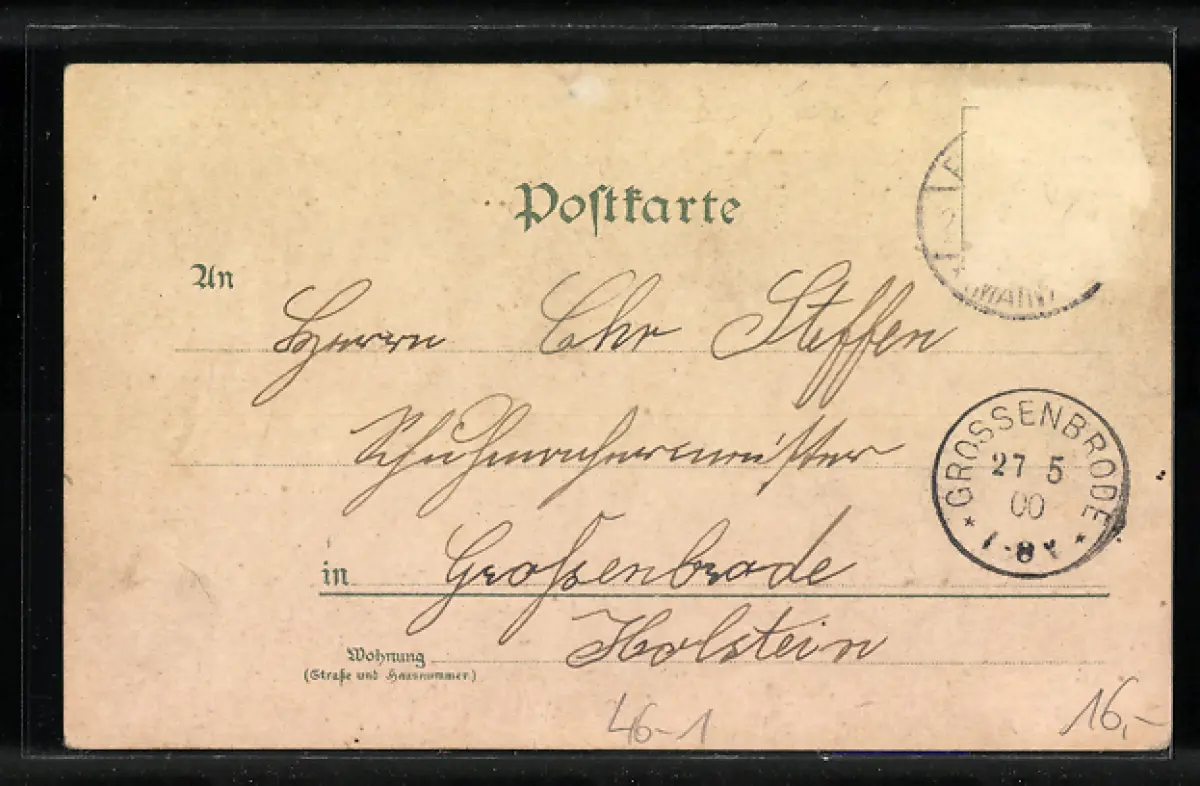 Postkarte
An
Herrn Chr Steffen
Schuhmachermeister
in Großenbrode
Holstein
Wohnung
(Straße und Hausnummer)
GROSSENBRODE
27 5
00
7-8V
46-1
16,-